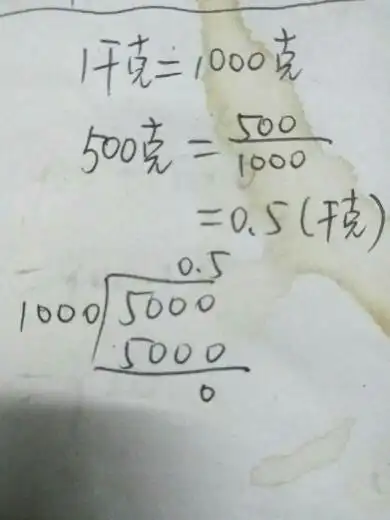 1千克=1000克
500克=500/1000
=0.5(千克)
0.5
1000 5000
5000
0